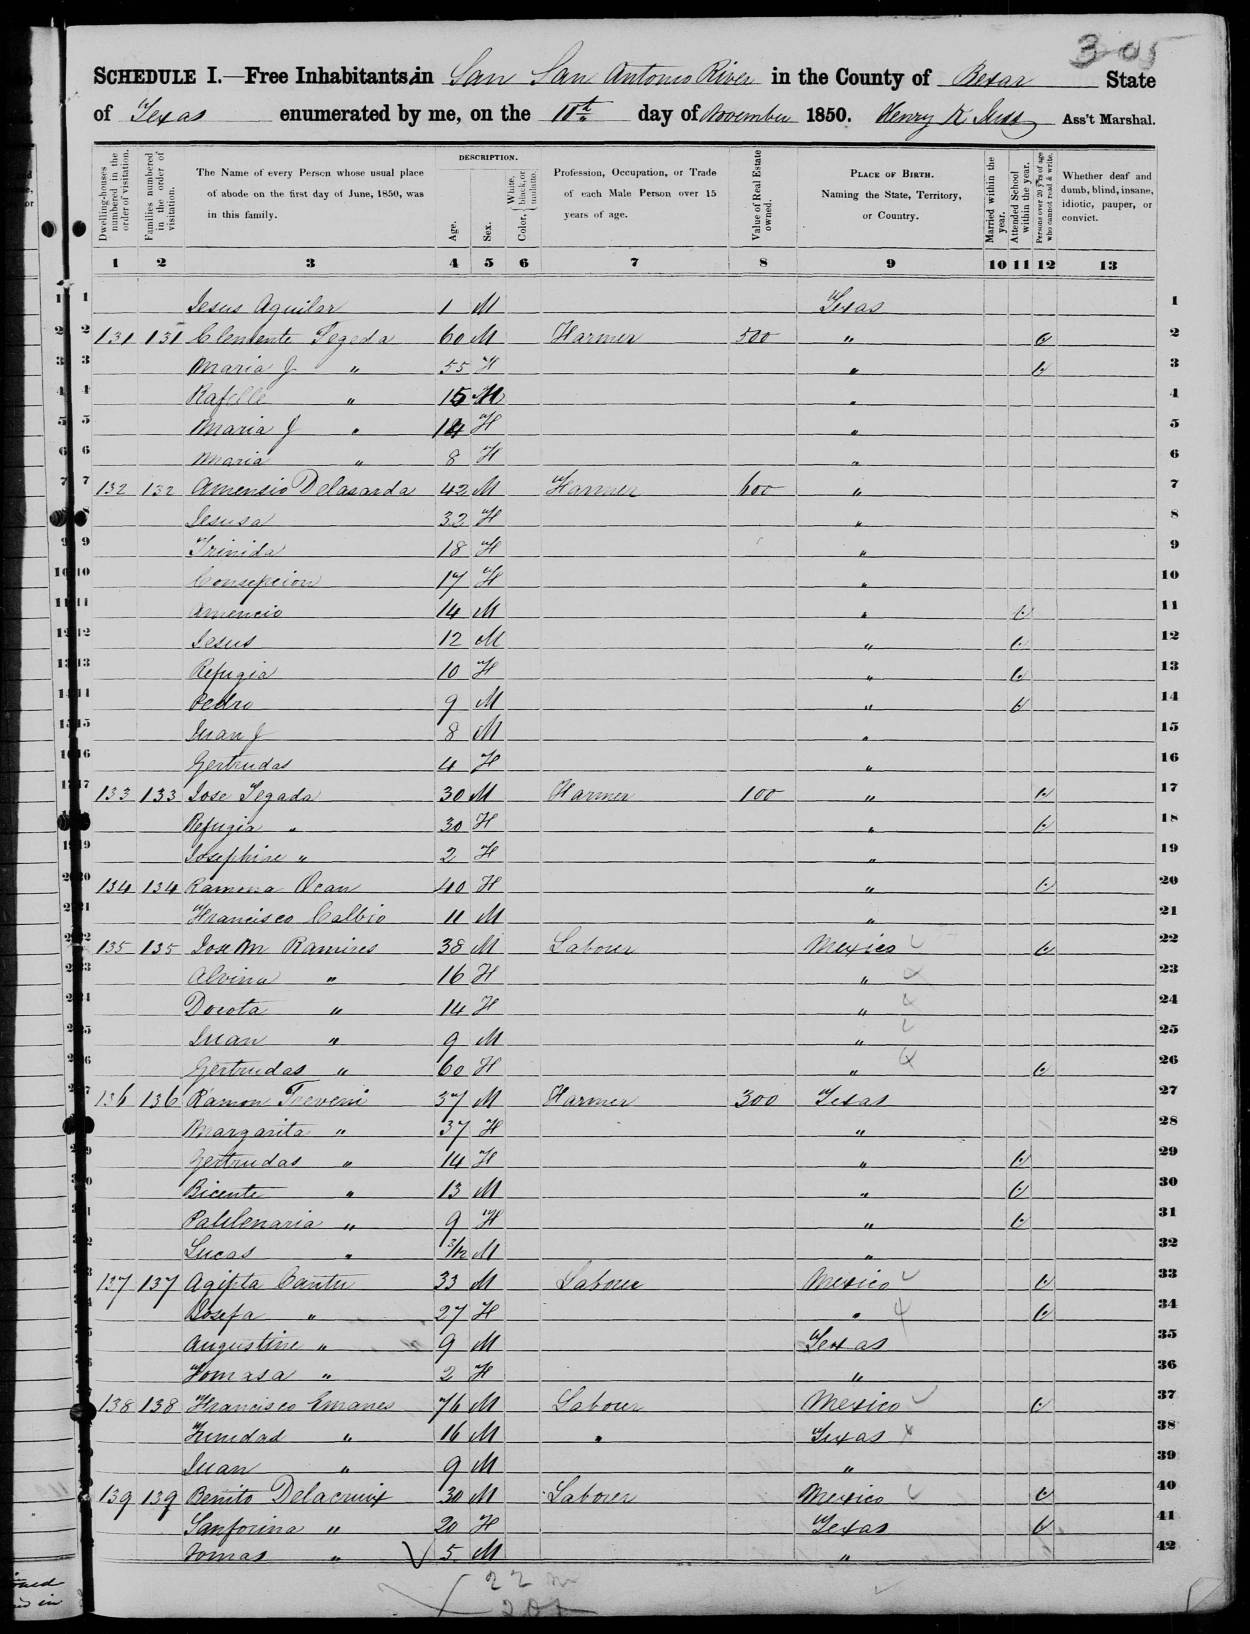 3 05
SCHEDULE I.—Free Inhabitants in San San Antonio River in the County of Bexar State
of Texas enumerated by me, on the 11th day of November 1850. Henry K Ass't Marshal.
Dwelling-houses numbered in the order of visitation.
Families numbered in the order of visitation.
The Name of every Person whose usual place of abode on the first day of June, 1850, was in this family.
DESCRIPTION.
Age.
Sex.
Color, { White, black, or mulatto.
Profession, Occupation, or Trade of each Male Person over 15 years of age.
Value of Real Estate owned.
PLACE OF BIRTH. Naming the State, Territory, or Country.
Married within the year.
Attended School within the year.
Persons over 20 y'rs of age who cannot read & write.
Whether deaf and dumb, blind, insane, idiotic, pauper, or convict.
1 2 3 4 5 6 7 8 9 10 11 12 13
1 Jesus Aguilar 1 M Texas 1
2 131 131 Clemente Segeda 60 M Farmer 500 " 2
3 Maria J " 55 F " 3
4 Rafelle " 15 M " 4
5 Maria J " 14 F " 5
6 Maria " 8 F " 6
7 132 132 Amensio Delasarda 42 M Farmer 600 " 7
8 Jesusa 32 F " 8
9 Trinida 18 F " 9
10 Consepcion 17 F " 10
11 Amencio 14 M " 11
12 Jesus 12 M " 12
13 Refugia 10 F " 13
14 Pedro 9 M " 14
15 Juan J 8 M " 15
16 Gertrudas 4 F " 16
17 133 133 Jose Segada 30 M Farmer 100 " 17
18 Refugia " 30 F " 18
19 Josephine " 2 F " 19
20 134 134 Ramona Ocan 40 F " 20
21 Francisco Calbio 11 M " 21
22 135 135 Jose M Ramires 38 M Laborer Mexico 22
23 Alvina " 16 F " 23
24 Docota " 14 F " 24
25 Juan " 9 M " 25
26 Gertrudas " 60 F " 26
27 136 136 Ramon Treveni 37 M Farmer 300 Texas 27
28 Margarita " 37 F " 28
29 Gertrudas " 14 F " 29
30 Bicente " 13 M " 30
31 " 9 F " 31
32 Lucas " 3/12 M " 32
33 137 137 Agipta Cantu 33 M Laborer Mexico 33
34 Josefa " 27 F " 34
35 Augustine " 9 M Texas 35
36 Tomasa " 2 F " 36
37 138 138 Francisco Emanes 76 M Laborer Mexico 37
38 " 16 M " Texas 38
39 Juan " 9 M " 39
40 139 139 Benito Delacruix 30 M Laborer Mexico 40
41 Sanforina " 20 F Texas 41
42 Tomas " 5 M " 42
22